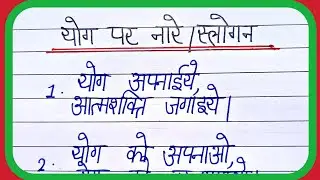 योग पर नारे/स्लोगन
1. योग अपनाईये,
आत्मशक्ति जगाइये।
2. योग को अपनाओ,